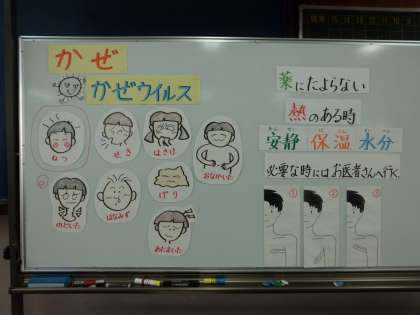 かぜ
かぜウイルス
ねつ
せき
はきけ
おなかいた
のどいた
はなみず
げり
あたまいた
薬にたよらない
熱のある時
安静 保温 水分
必要な時にはお医者さんへ行く
① ② ③